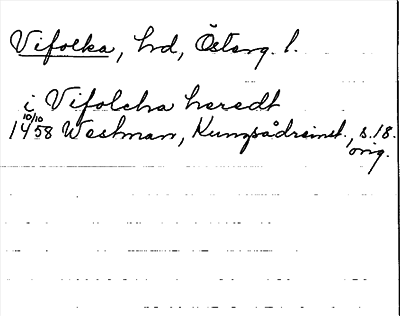 Vifolka, hd, Österg. l.
i Vifolcha heredt
10/10
1458 Westman, Kungsådreinst., s. 18.
orig.